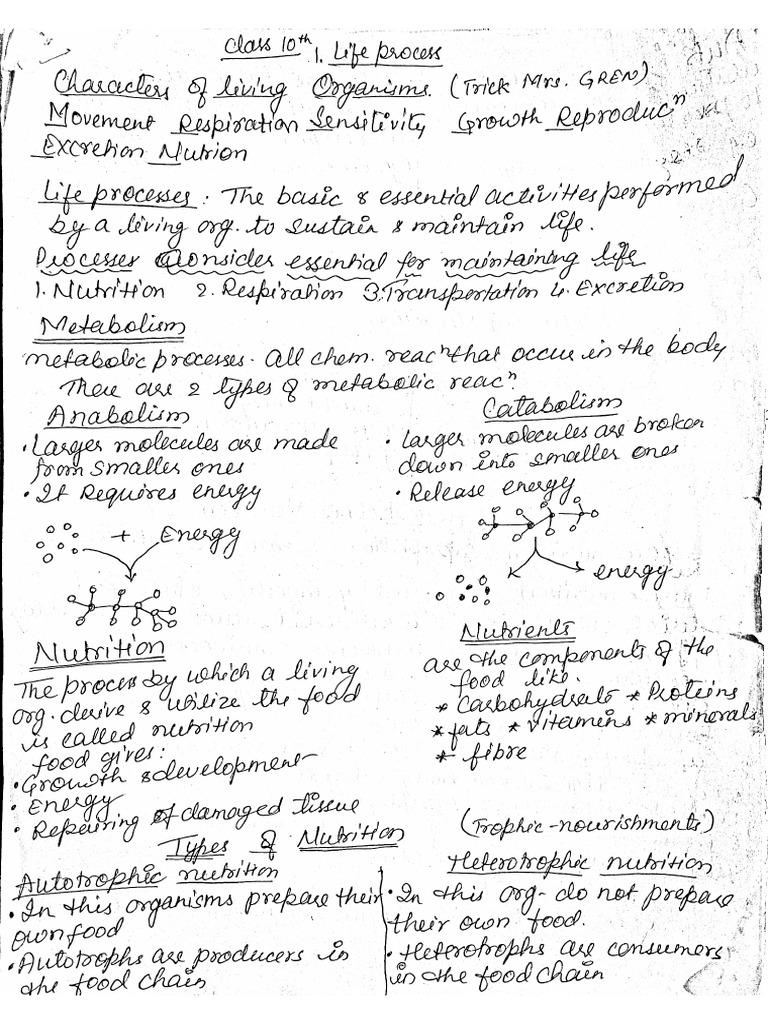 Class 10th 1. Life process
Characters of living Organisms. (Trick Mrs. GREN)
Movement Respiration Sensitivity Growth Reproducn
Excretion Nutrion
Life processes : The basic & essential activities performed
by a living org. to sustain & maintain life.
Processes Consider essential for maintaining life
1. Nutrition 2. Respiration 3. Transportation 4. Excretion
Metabolism
metabolic processes. All chem. reacn that occur in the body
There are 2 types of metabolic reacn.
Anabolism
• Larger molecules are made
from smaller ones
• It Requires energy
+ Energy
Catabolism
• Larger molecules are broken
down into smaller ones
• Release energy
energy
Nutrition
The process by which a living
org. derive & utilize the food
is called nutrition
food gives:
• Growth & development
• Energy
• Repairing of damaged tissue
Nutrients
are the components of the
food like.
* Carbohydrate * Proteins
* fats * vitamins * minerals
* fibre
Types of Nutrition
(Trophic-nourishments)
Autotrophic nutrition
• In this organisms prepare their
own food
• Autotrophs are producers in
the food chain
Heterotrophic nutrition
• In this org- do not prepare
their own food.
• Heterotrophs are consumers
in the food chain